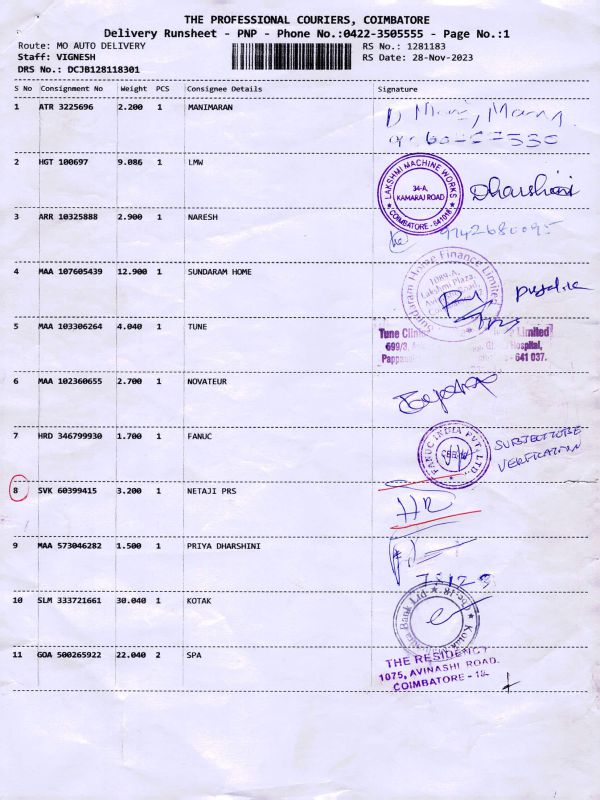 THE PROFESSIONAL COURIERS, COIMBATORE
Delivery Runsheet - PNP - Phone No.:0422-3505555 - Page No.:1
Route: MO AUTO DELIVERY
RS No.: 1281183
Staff: VIGNESH
RS Date: 28-Nov-2023
DRS No.: DCJB128118301
S No Consignment No Weight PCS Consignee Details Signature
1 ATR 3225696 2.200 1 MANIMARAN
2 HGT 100697 9.086 1 LMW
LAKSHMI MACHINE WORKS
34-A,
KAMARAJ ROAD
COIMBATORE - 641018
Dharshini
3 ARR 10325888 2.900 1 NARESH
9742680095
4 MAA 107605439 12.900 1 SUNDARAM HOME
Sundaram Home Finance Limited
1089-A,
Lakshmi Plaza,
5 MAA 103306264 4.040 1 TUNE
Tune Limited
699/3, Hospital,
- 641 037.
6 MAA 102360655 2.700 1 NOVATEUR
7 HRD 346799930 1.700 1 FANUC
FANUC INDIA PVT. LTD.,
SUBJECT TO BE
VERIFICATION
8 SVK 60399415 3.200 1 NETAJI PRS
HR
9 MAA 573046282 1.500 1 PRIYA DHARSHINI
10 SLM 333721661 30.040 1 KOTAK
Bank Ltd
11 GOA 500265922 22.040 2 SPA
THE RESIDENCY
1075, AVINASHI ROAD.
COIMBATORE - 18.